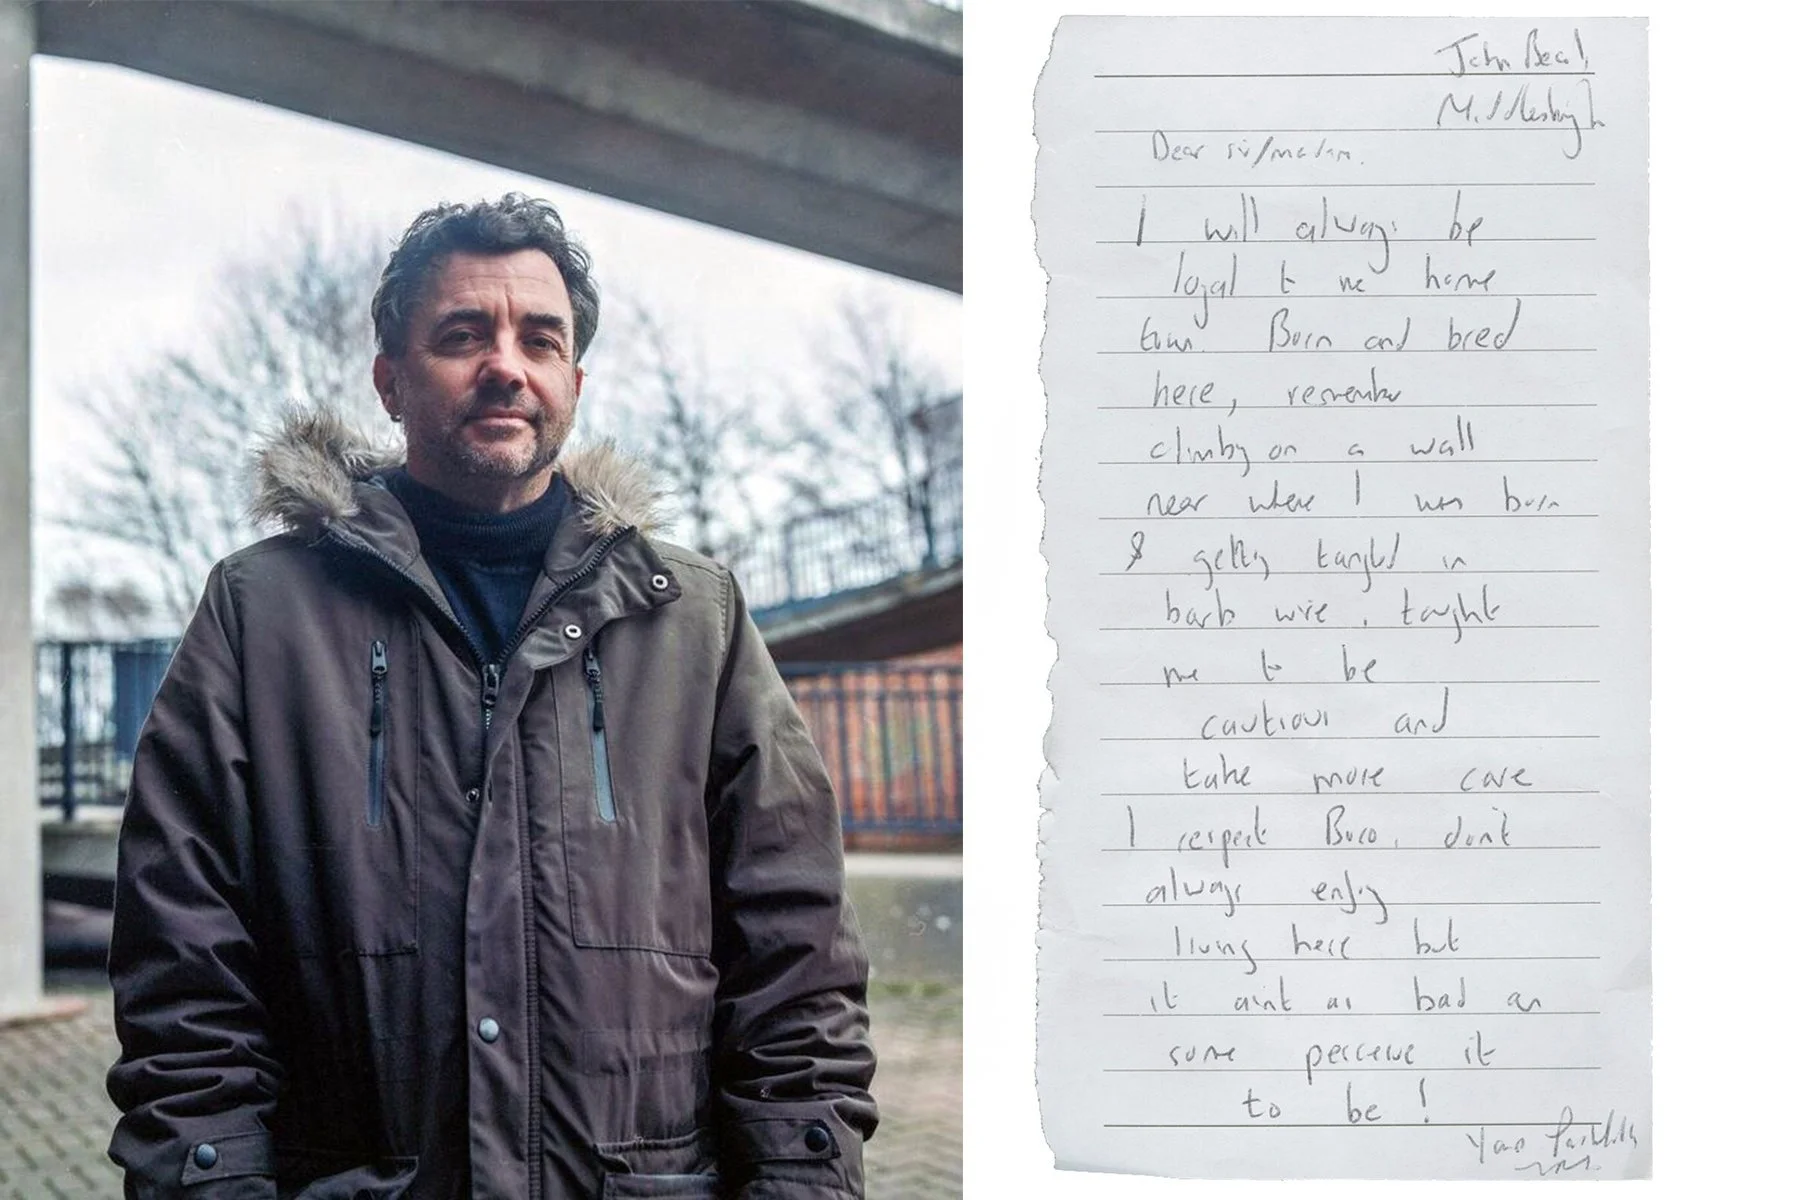 John Beal,
Middlesbrough
Dear sir/madam.
I will always be
loyal to me home
town. Born and bred
here, remember
climbing on a wall
near where I was born
& getting tangled in
barb wire, taught
me to be
cautious and
take more care
I respect Boro, don't
always enjoy
living here but
it aint as bad as
some perceive it
to be!
Yours faithfully